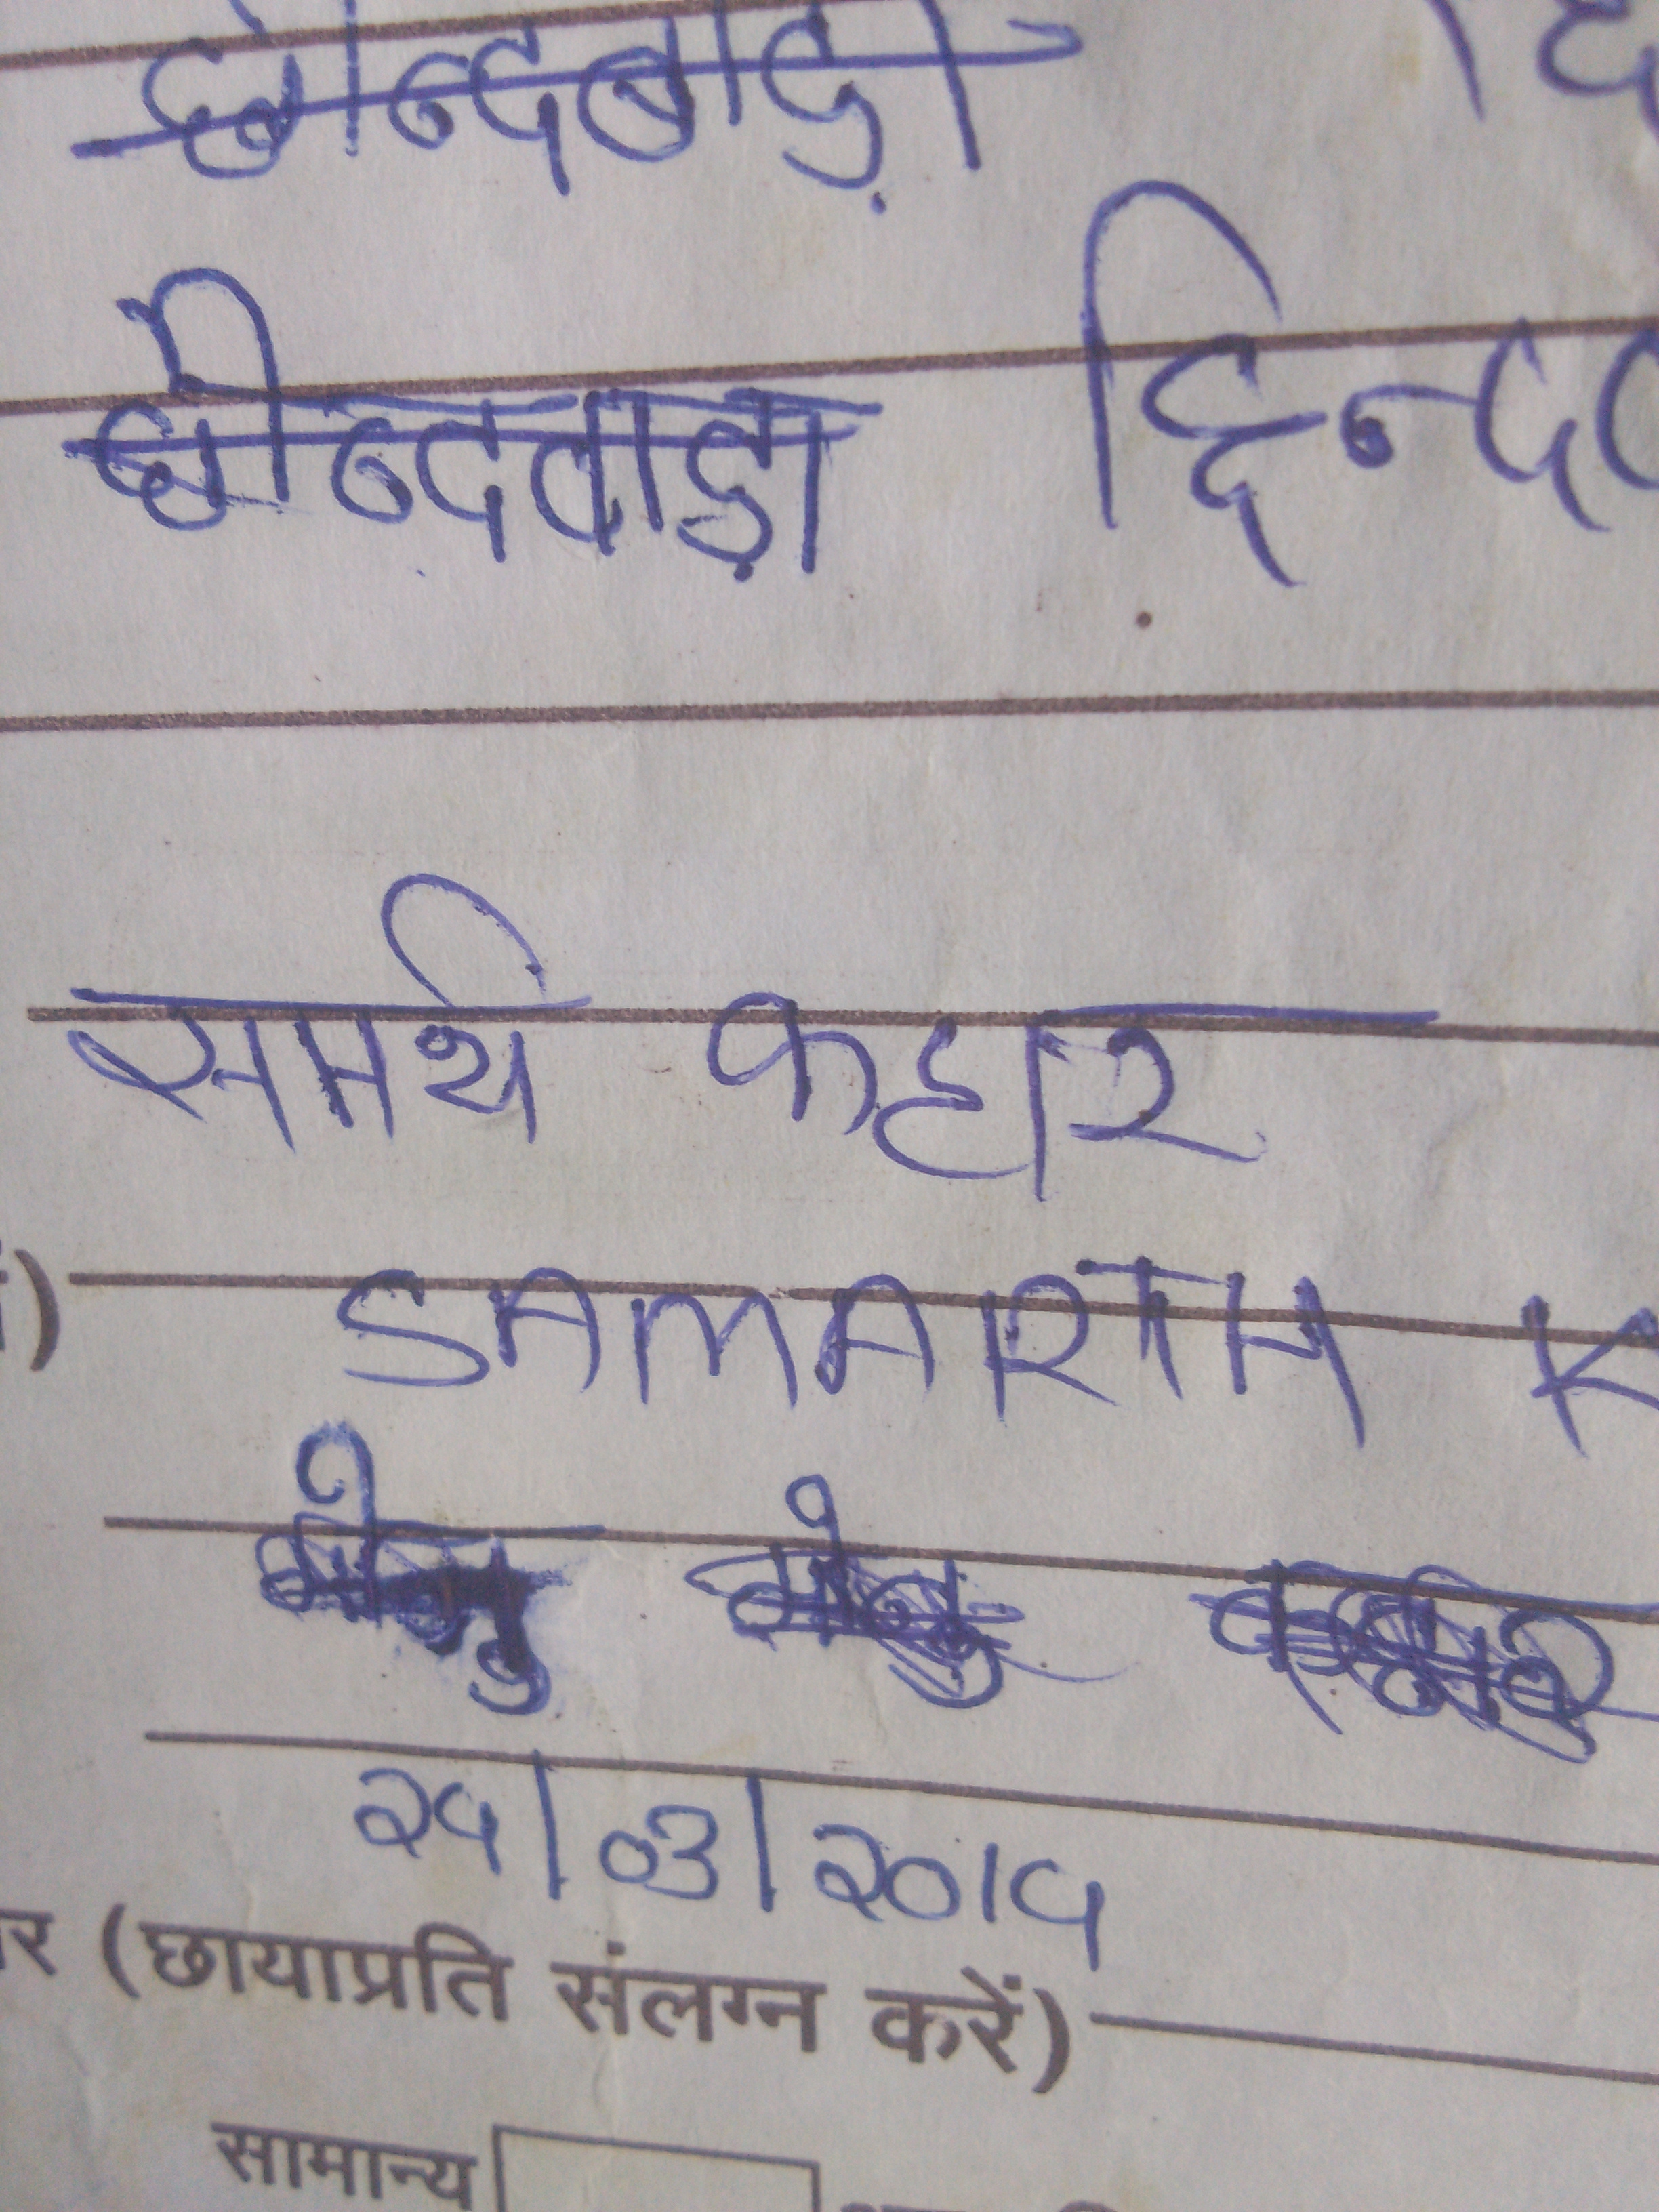 छीन्दवाड़ा
छीन्दवाड़ा छिन्दव
समर्थ कहार
SAMARTH K
२५/०३/२०१५
र (छायाप्रति संलग्न करें)
सामान्य